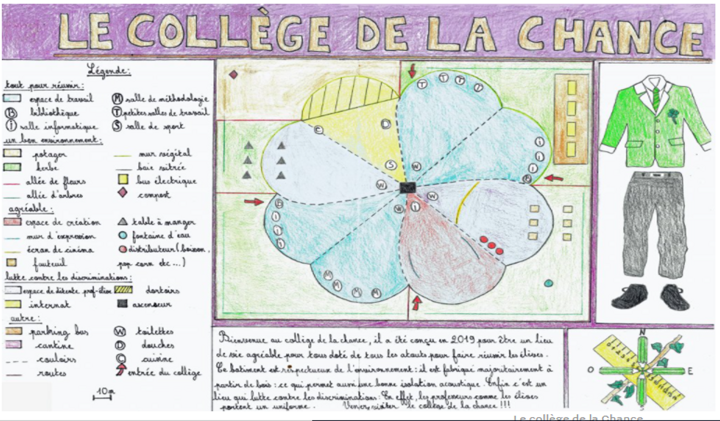 LE COLLÈGE DE LA CHANCE
Légende:
tout pour réussir:
espace de travail
Ⓑ bibliothèque
Ⓘ salle informatique
Ⓜ salle de méthodologie
Ⓣ petites salles de travail
Ⓢ salle de sport
un bon environnement:
potager
herbe
allée de fleurs
allée d'arbres
mur végétal
baie vitrée
bus électrique
compost
agréable:
espace de création
mur d'expression
écran de cinéma
fauteuil
table à manger
fontaine d'eau
distributeur (boisson,
pop corn etc...)
lutte contre les discriminations:
espace de détente prof-élève
internat
dortoirs
ascenseur
autre:
parking bus
cantine
couloirs
routes
Ⓦ toilettes
Ⓓ douches
Ⓒ cuisine
entrée du collège
10m
Bienvenue au collège de la chance, il a été conçu en 2019 pour être un lieu
de vie agréable pour tous doté de tous les atouts pour faire réussir les élèves.
Ce batiment est respectueux de l'environnement: il est fabriqué majoritairement à
partir de bois: ce qui permet aussi une bonne isolation acoustique. Enfin c'est un
lieu qui lutte contre les discriminations. En effet, les professeurs comme les élèves
portent un uniforme. Venez visiter le collège de la chance !!!
N
O E
S
Le collège de la Chance